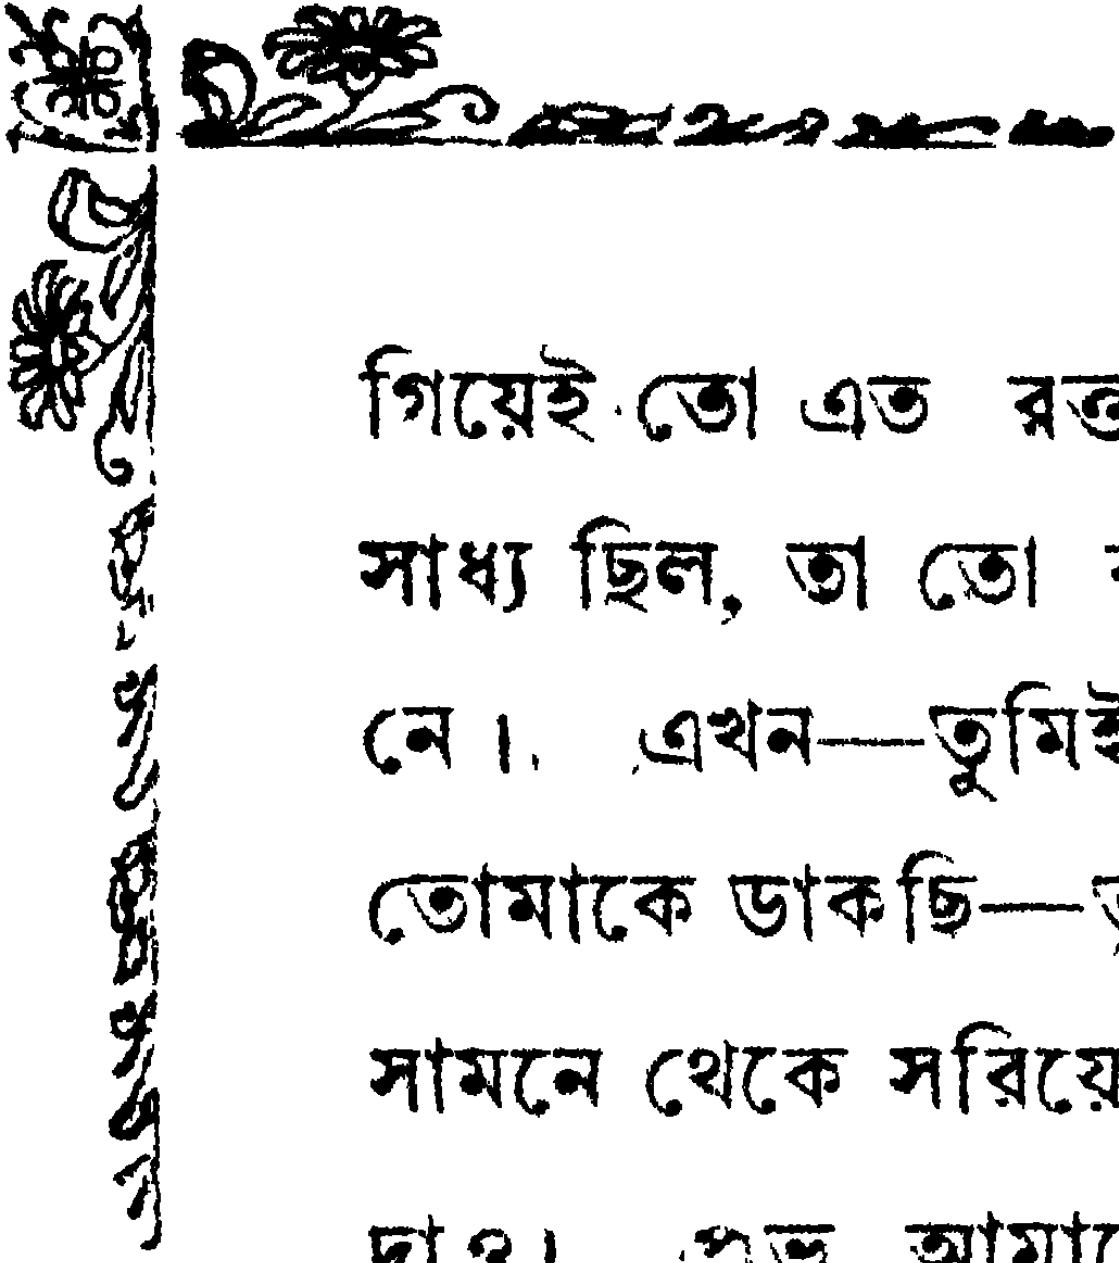 গিয়েই তো এত
সাধ্য ছিল, তা তো
নে। এখন—তুমিই
তোমাকে ডাকছি—
সামনে থেকে সরিয়ে
দাও। প্রভু